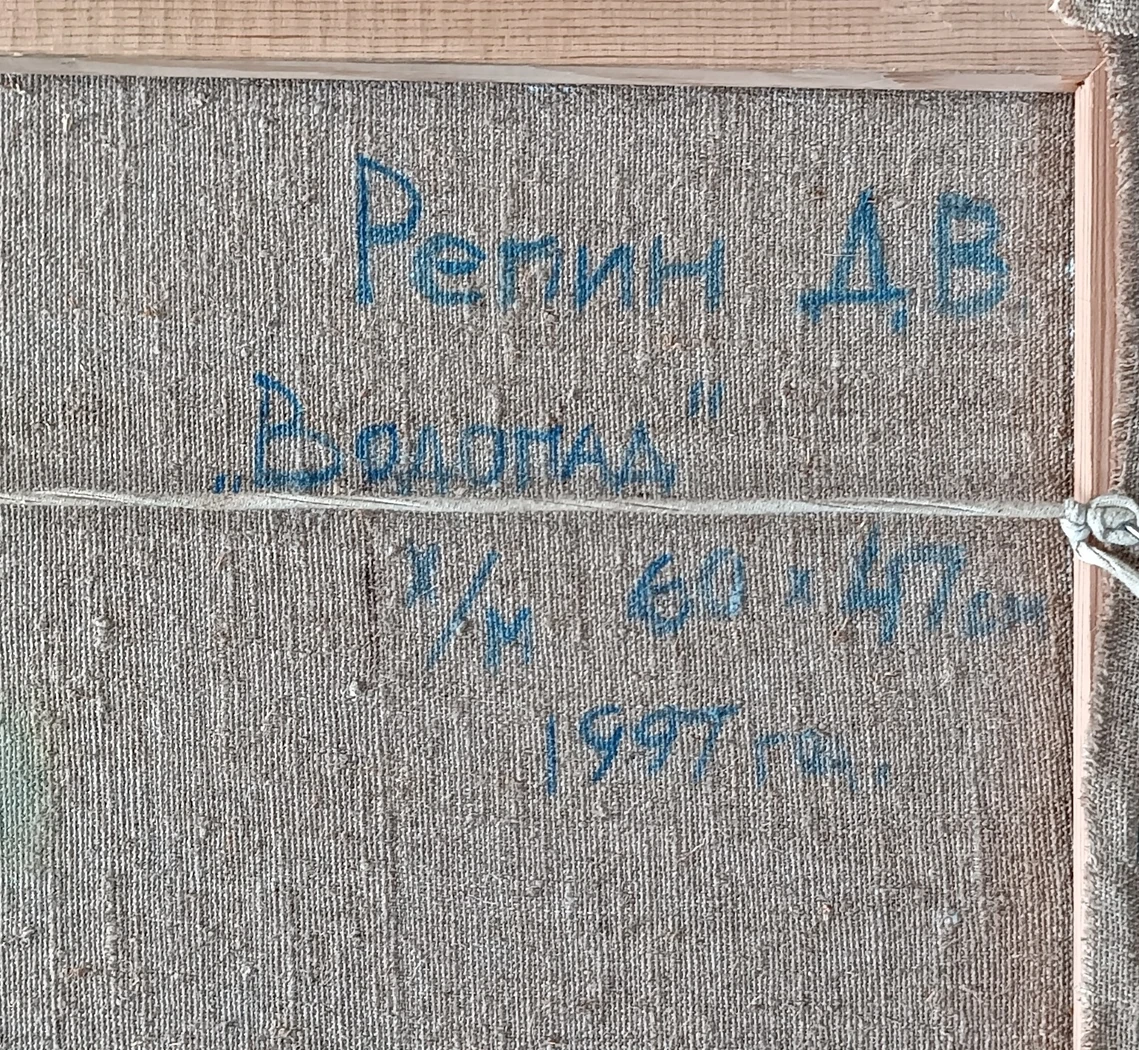 Репин ДВ
„Водопад"
х/м 60 х 47 см
1997 год.